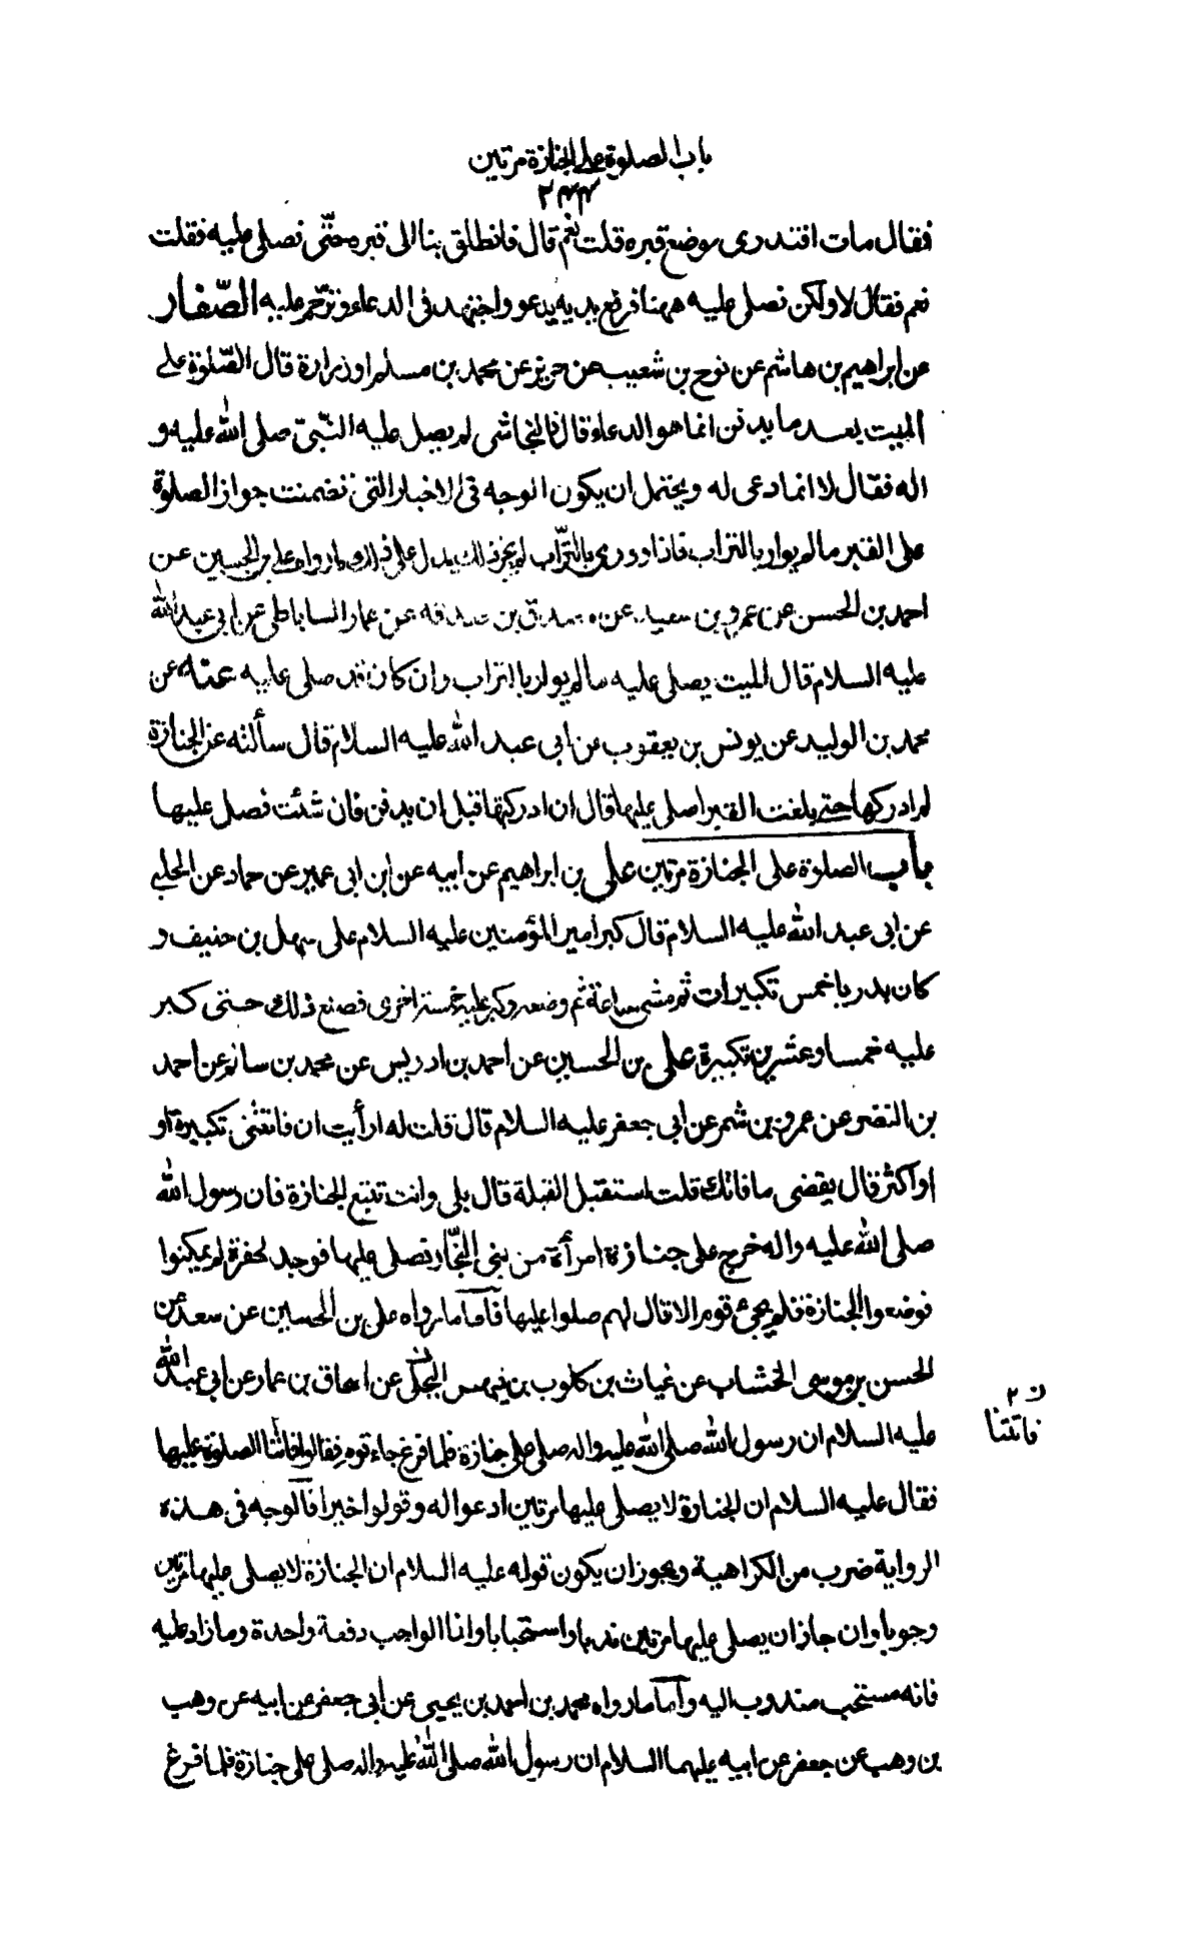 باب الصلوة على الجنازة مرتين
٢٤٤
فقال مات افتدرى موضع قبره قلت نعم قال فانطلق بنا الى قبره حتّى نصلى عليه فقلت
نعم فقال لا ولكن نصلى عليه ههنا فرفع يديه يدعو واجتهد فى الدعاء وترحّم عليه الصّفار
عن ابراهيم بن هاشم عن نوح بن شعيب عن حريز عن محمد بن مسلم او زرارة قال الصّلوة على
الميت بعد ما يدفن انما هو الدعاء قال فالنجاشى لم يصل عليه النّبىّ صلى الله عليه و
اله فقال لا انما دعى له ويحتمل ان يكون الوجه فى الاخبار التى تضمنت جواز الصلوة
على القبر ما لم يوار بالتراب فاذا وورى بالتّراب لم يجز ذلك يدل على ذلك ما رواه على بن الحسين عن
احمد بن الحسن عن عمرو بن سعيد عن مصدق بن صدقه عن عمار الساباطى عن ابى عبد الله
عليه السلام قال الميت يصلى عليه ما لم يوار بالتراب وان كان قد صلى عليه عنه عن
محمد بن الوليد عن يونس بن يعقوب عن ابى عبد الله عليه السلام قال سألته عن الجنازة
لم ادركها حتى بلغت القبر اصلى عليها قال ان ادركتها قبل ان يدفن فان شئت فصل عليها
باب الصلوة على الجنازة مرتين على بن ابراهيم عن ابيه عن ابن ابى عمير عن حماد عن الحلبى
عن ابى عبد الله عليه السلام قال كبر امير المؤمنين عليه السلام على سهل بن حنيف و
كان بدريا خمس تكبيرات ثم مشى ساعة ثم وضعه وكبر عليه خمسة اخرى فصنع ذلك حتى كبر
عليه خمسا وعشرين تكبيرة على بن الحسين عن احمد بن ادريس عن محمد بن سالم عن احمد
بن النضر عن عمرو بن شمر عن ابى جعفر عليه السلام قال قلت له ارأيت ان فاتتنى تكبيرة او
او اكثر قال يقضى ما فاتك قلت استقبل القبلة قال بلى وانت تتبع الجنازة فان رسول الله
صلى الله عليه واله خرج على جنازة امرأة من بنى النجّار فصلى عليها فوجد الحفرة لم يمكنوا
فوضعوا الجنازة فلم يجئ قوم الا قال لهم صلوا عليها فاما ما رواه على بن الحسين عن سعد عن
الحسن بن موسى الخشاب عن غياث بن كلوب بن فيهس البجلى عن اسحاق بن عمار عن ابى عبد الله
عليه السلام ان رسول الله صلى الله عليه واله صلى على جنازة فلما فرغ جاء قوم فقالوا فاتتنا الصلوة عليها
ن ٢
فاتتنا
فقال عليه السلام ان الجنازة لا يصلى عليها مرتين ادعوا له وقولوا خيرا فالوجه فى هذه
الرواية ضرب من الكراهية ويجوز ان يكون قوله عليه السلام ان الجنازة لا يصلى عليها مرتين
وجوبا وان جاز ان يصلى عليها مرتين ندبا واستحبابا وانما الواجب دفعة واحدة وما زاد عليه
فانه مستحب مندوب اليه واما ما رواه محمد بن احمد بن يحيى عن ابى جعفر عن ابيه عن وهب
بن وهب عن جعفر عن ابيه عليهما السلام ان رسول الله صلى الله عليه واله صلى على جنازة فلما فرغ